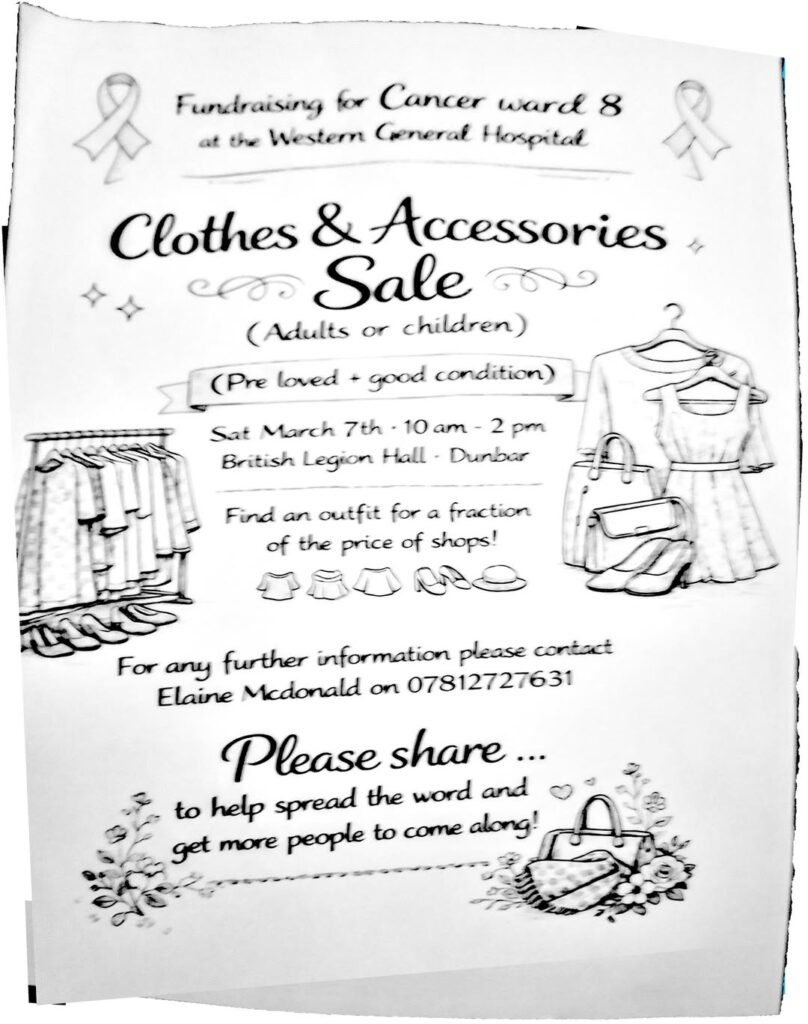 Fundraising for Cancer ward 8
at the Western General Hospital
Clothes & Accessories
Sale
(Adults or children)
(Pre loved + good condition)
Sat March 7th · 10 am - 2 pm
British Legion Hall · Dunbar
Find an outfit for a fraction
of the price of shops!
For any further information please contact
Elaine Mcdonald on 07812727631
Please share ...
to help spread the word and
get more people to come along!